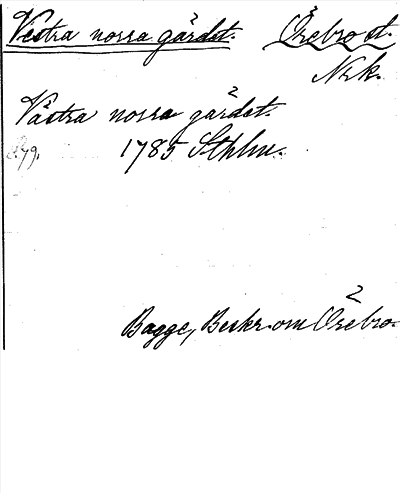 Vestra norra gärdet. Örebro st.
Nrk.
Västra norra gärdet.
s. 79. 1785 Sthlm.
Bagge, Beskr. om Örebro.